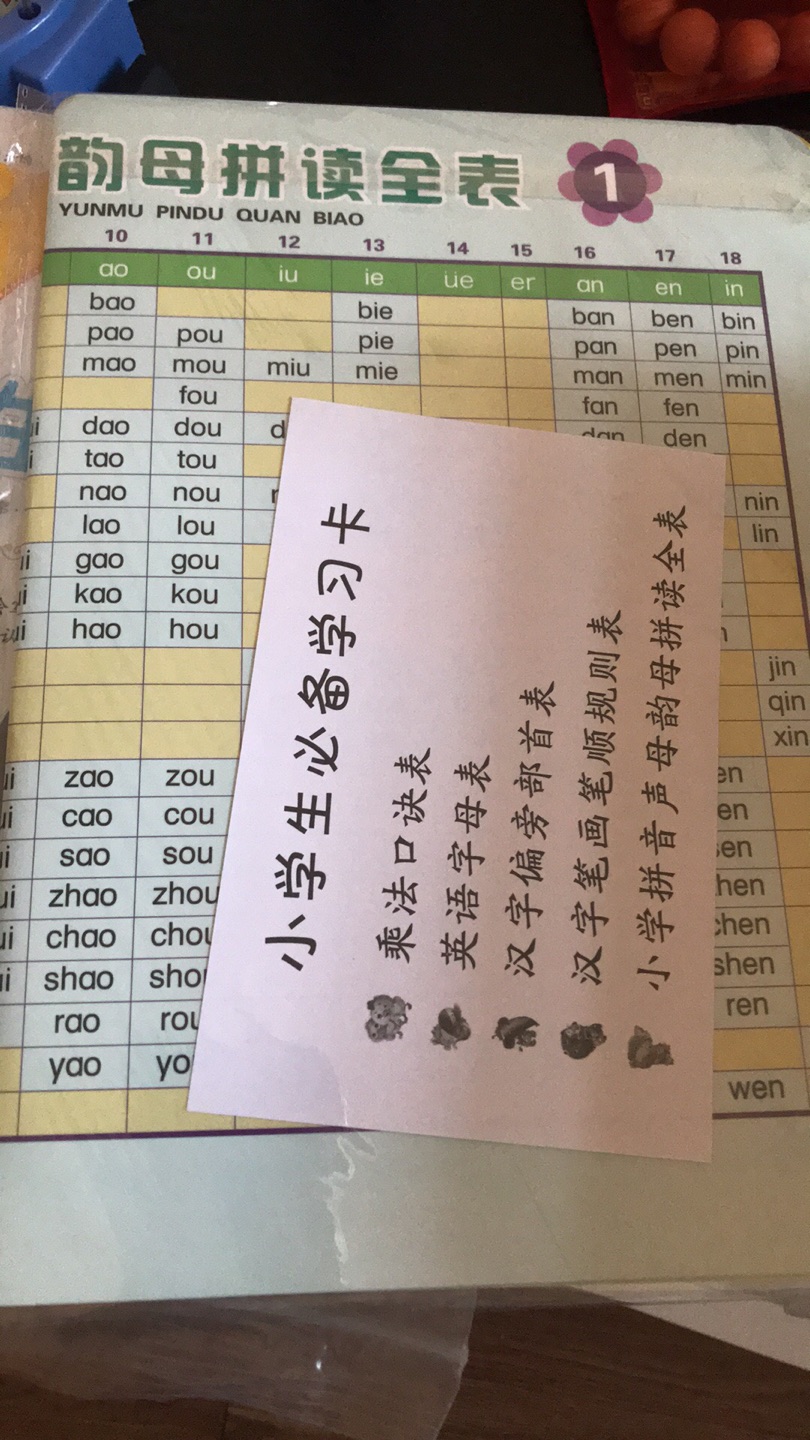 韵母拼读全表 1
YUNMU PINDU QUAN BIAO
10 11 12 13 14 15 16 17 18
ao ou iu ie üe er an en in
bao bie ban ben bin
pao pou pie pan pen pin
mao mou miu mie man men min
fou fan fen
dao dou dan den
tao tou
nao nou nin
lao lou lin
gao gou
kao kou
hao hou
jin
qin
xin
zao zou
cao cou
sao sou
zhao zhou
chao chou
shao shen
rao ren
yao
wen
小学生必备学习卡
乘法口诀表
英语字母表
汉字偏旁部首表
汉字笔画笔顺规则表
小学拼音声母韵母拼读全表